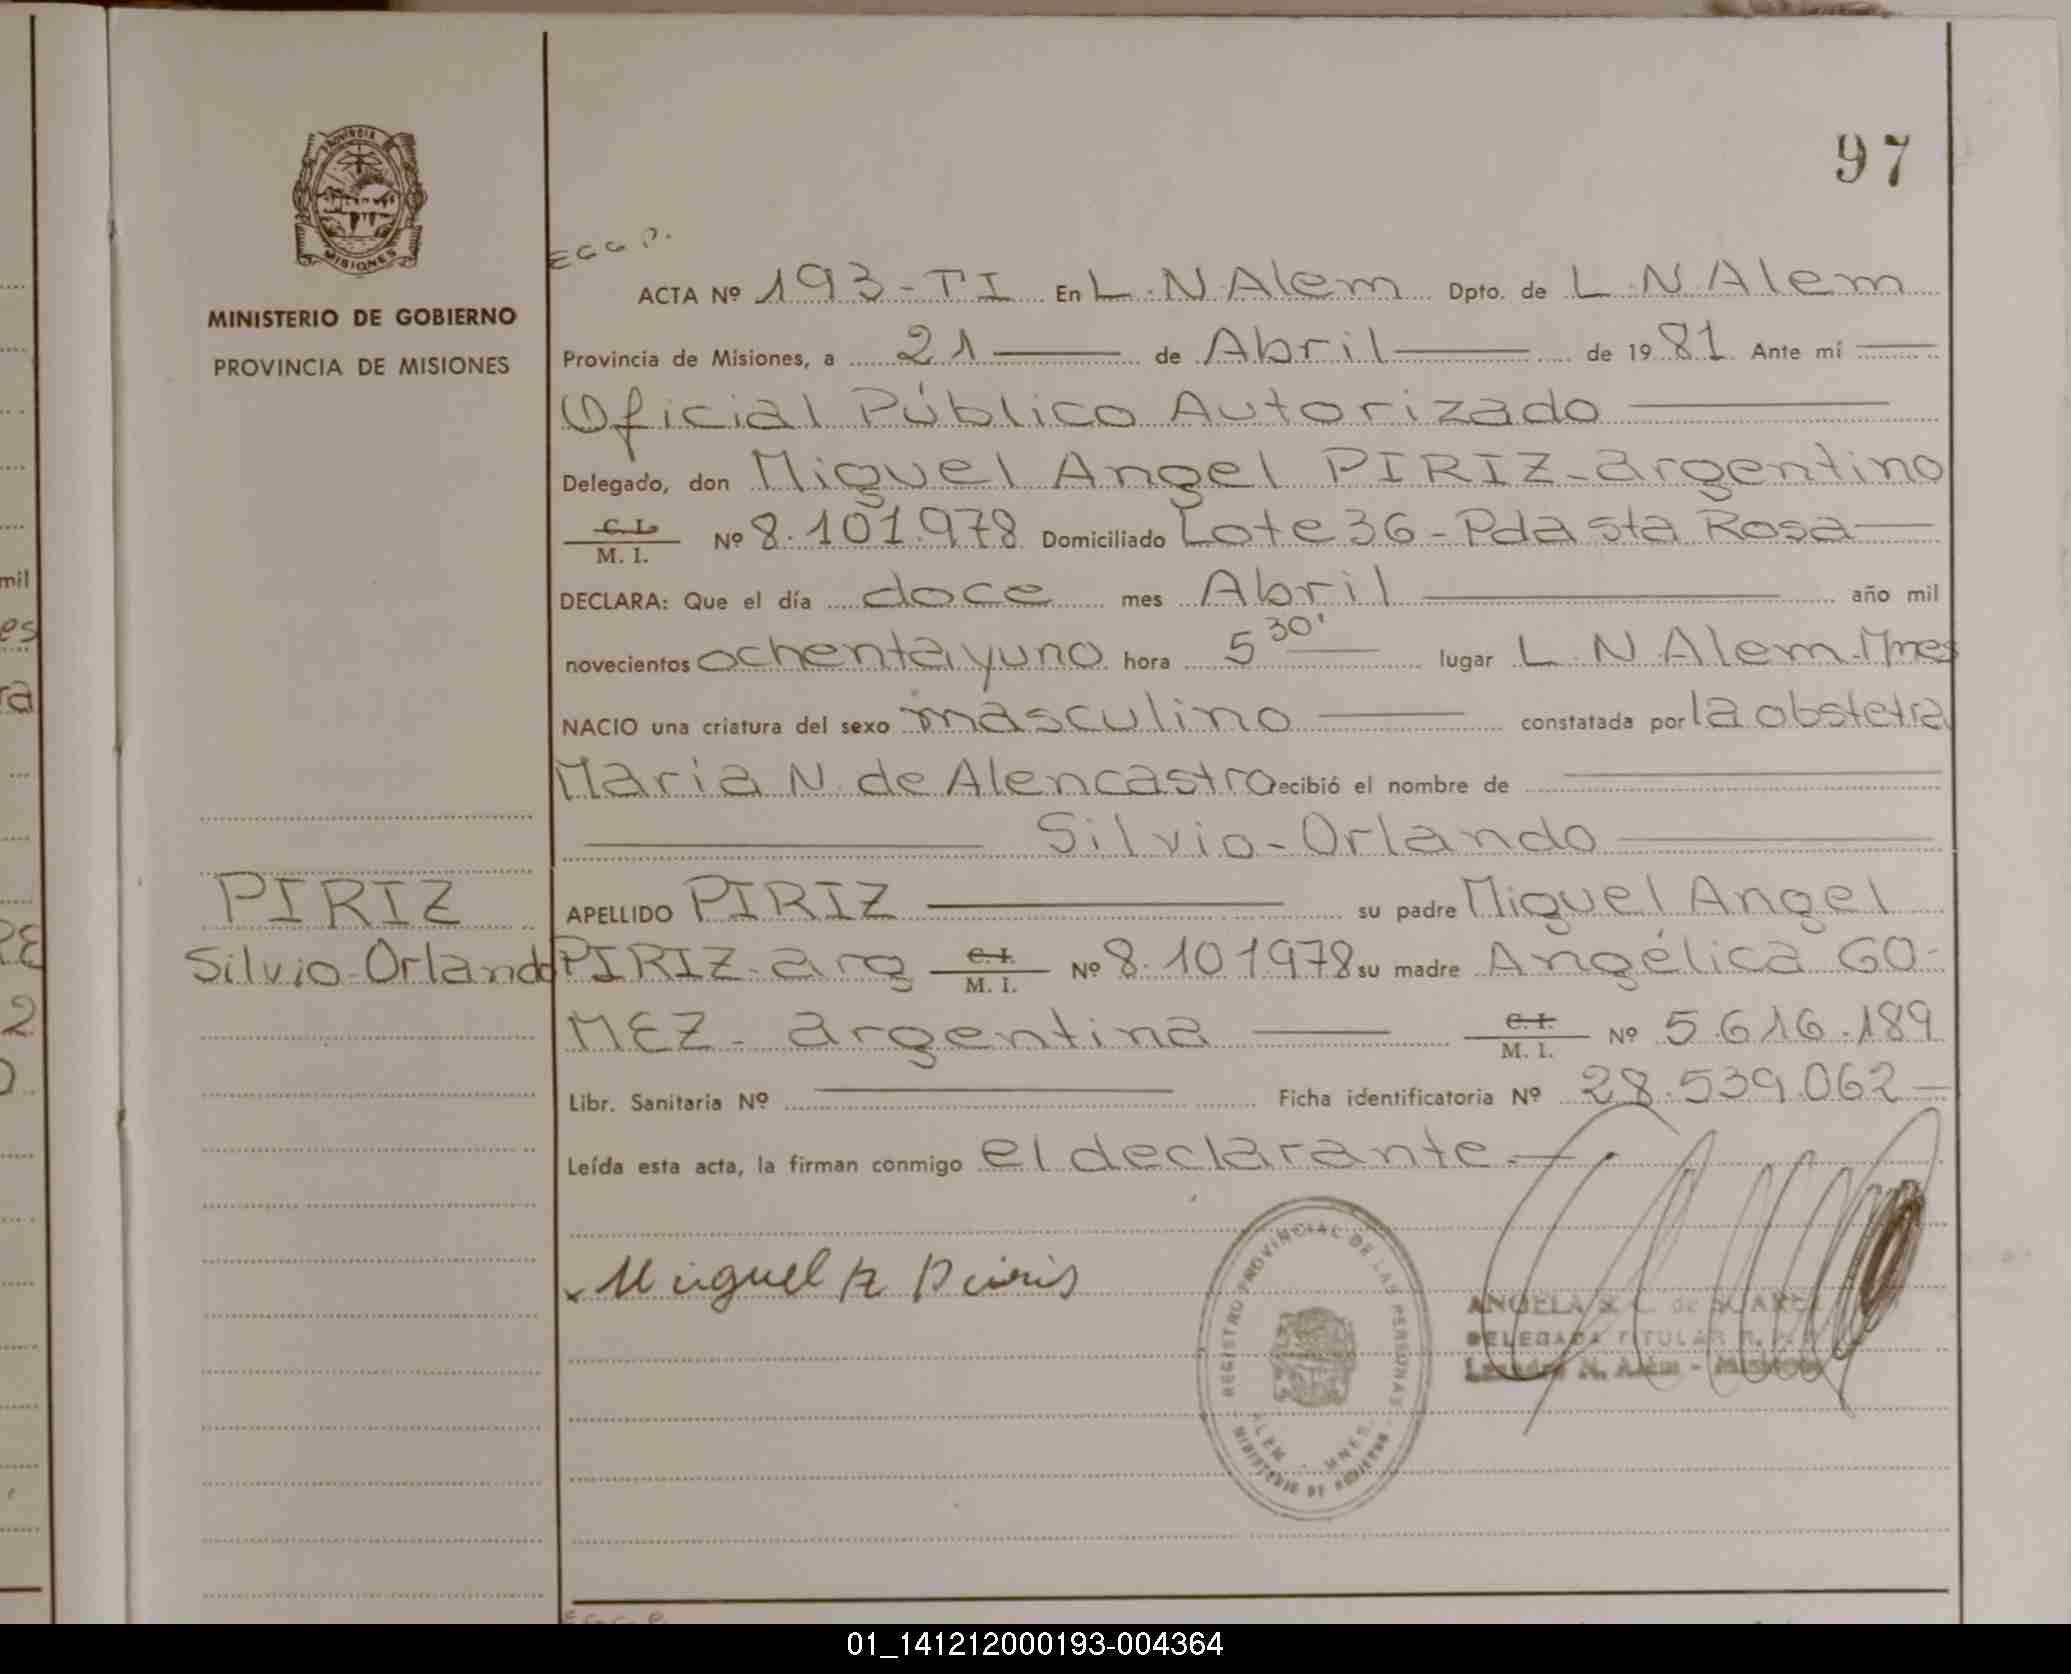 97
PROVINCIA
MISIONES
MINISTERIO DE GOBIERNO
PROVINCIA DE MISIONES
PIRIZ
Silvio-Orlando
E G G P.
ACTA Nº 193-TI En L.N.Alem Dpto. de L.N.Alem
Provincia de Misiones, a 21 de Abril de 1981 Ante mí
Oficial Público Autorizado
Delegado, don Miguel Angel PIRIZ-argentino
C. I. M. I. Nº 8.101.978 Domiciliado Lote 36-Pda sta Rosa
DECLARA: Que el día doce mes Abril año mil
novecientos ochenta y uno hora 5 30' lugar L.N.Alem-Mnes
NACIO una criatura del sexo masculino constatada por la obstetra
Maria N. de Alencastro recibió el nombre de
Silvio-Orlando
APELLIDO PIRIZ su padre Miguel Angel
PIRIZ-arg C. I. M. I. Nº 8.101978 su madre Angélica GO-
MEZ-argentina C. I. M. I. Nº 5.616.189
Libr. Sanitaria Nº Ficha identificatoria Nº 28.539.062
Leída esta acta, la firman conmigo el declarante.
Miguel A Piris
REGISTRO PROVINCIAL DE LAS PERSONAS
ALEM - MNES.
MINISTERIO DE GOBIERNO
ANGELA de SUAREZ
DELEGADA TITULAR R.
Leandro N. Alem - Misiones
01_141212000193-004364